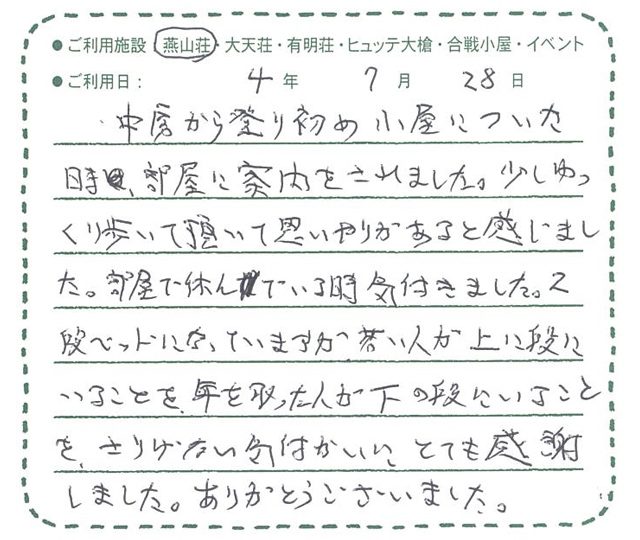 ●ご利用施設 燕山荘・大天荘・有明荘・ヒュッテ大槍・合戦小屋・イベント
●ご利用日： 4 年 7 月 28 日
中房から登り初め 小屋についた
時、部屋に案内をされました。少しゆっ
くり歩いて頂いて思いやりがあると感じまし
た。部屋で休んでいる時気付きました。2
段ベッドになっていますが 若い人が上に段に
いることを、年を取った人が下の段にいること
を、さりげない気付かいに とても感謝
しました。ありがとうございました。